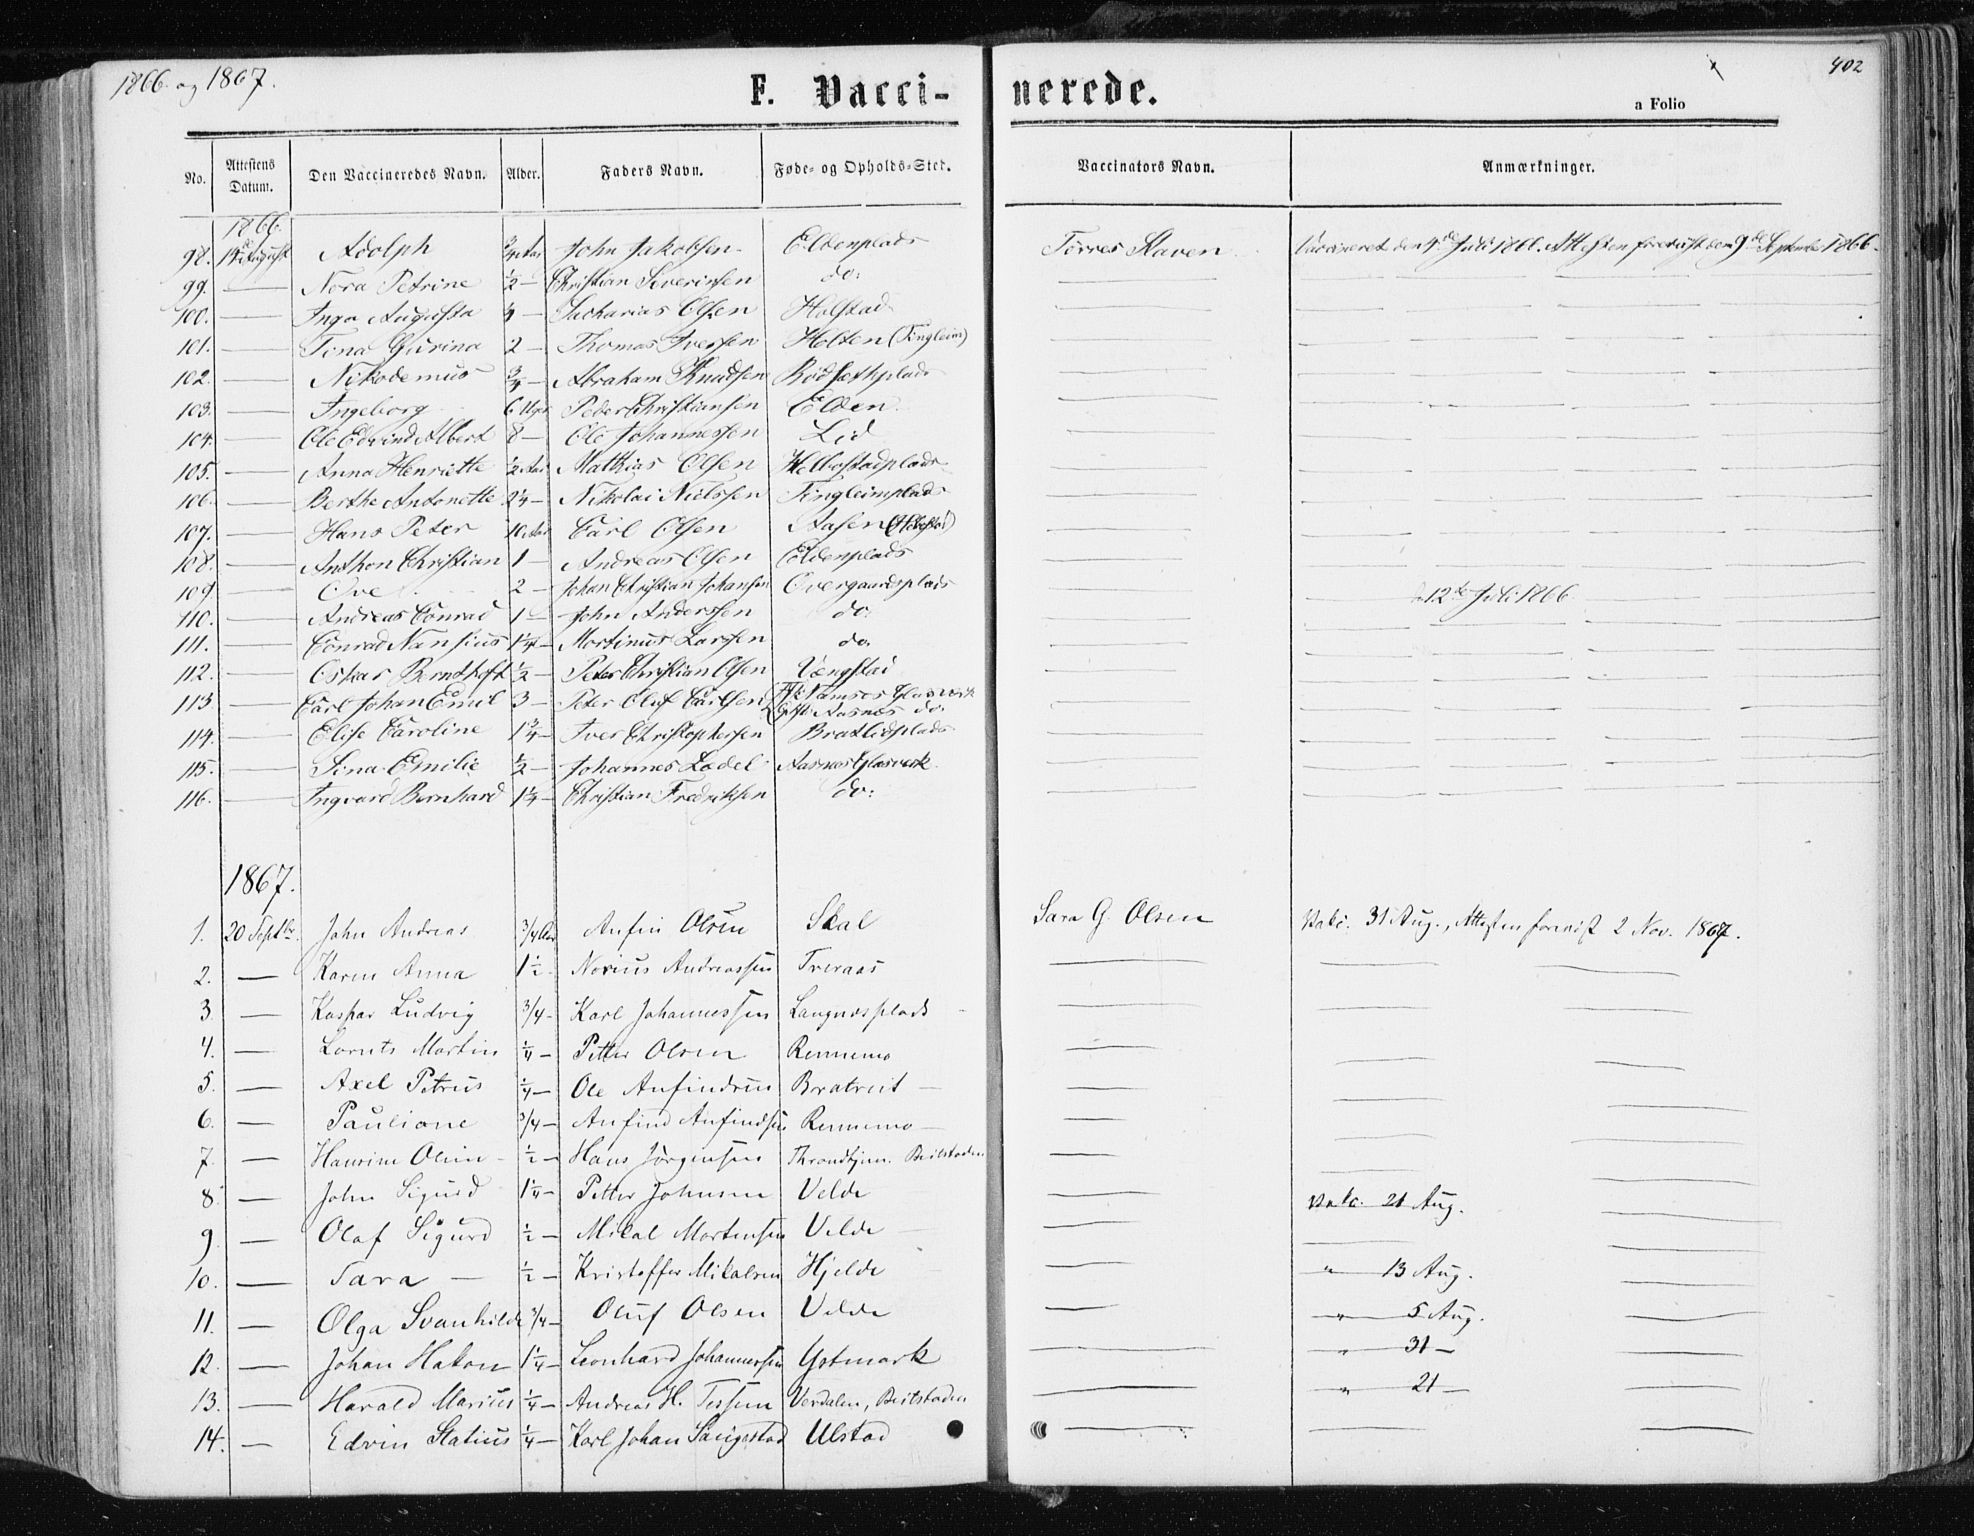 1866 og 1867.
F. Vacci-nerede.
a Folio
402
No. Attestens Datum. Den Vaccineredes Navn. Alder. Faders Navn. Føde- og Opholds-Sted. Vaccinators Navn. Anmærkninger.
1866.
98. 14de August Adolph 3/4 Aar John Jakobsen Eldenplads Torres Slaven Vaccineret den 4de Juli 1866. Attesten forevist den 9de September 1866.
99. — Nora Petrine 1/2 — Christian Severinsen do:
100. — Inga Augusta 4 — Sacharias Olsen Holstad
101. — Tina Gurina 2 — Thomas Iversen Holten (Tingleim)
102. — Nikodemus 3/4 — Abraham Knudsen Rødsethplads
103. — Ingeborg 6 Uger Peder Christiansen Elden
104. — Ole Edvind Albert 8 — Ole Johannessen Lid
105. — Anna Henriette 1/2 Aar Mathias Olsen Helbostadplads
106. — Berthe Antonette 2 1/4 — Nikolai Nielssen Tingleimplads
107. — Hans Peter 10 Aar Carl Olsen Aasen
108. — Anthon Christian 1 — Andreas Olsen Eldenplads
109. — Ove 2 — Johan Christian Johansen Overgaardsplads 12te Juli 1866.
110. — Andreas Conrad 1 — John Anderssen do:
111. — Conrad Nansius 1 1/4 — Mortinus Larssen do.
112. — Oskar Berndhoft 1/2 — Peter Christian Olsen Vengstad
113 — Carl Johan Emil 3 — Peter Oluf Carlsen F.st: Namsos Glasværk
O.st: Aasnes do.
114. — Elise Caroline 1 3/4 — Iver Christophersen Bratlidplads
115. — Sina Emilie 1/2 — Johannes Ladel Aasnes Glasverk
116. — Ingvard Bernhard 1 1/4 — Christian Fredriksen do:
1867.
1. 20 Septbr. John Andreas 3/4 Aar Anfin Olsen Skal Sara G. Olsen Vakc. 31 Aug., Attesten forevist 2 Nov. 1867.
2. — Karen Anna 1 1/2 Norius Andreassen Treraas
3 — Kaspar Ludvig 3/4 — Karl Johannessen Langnesplads
4. — Lornts Martin 1/4 — Petter Olsen Rennemo
5. — Axel Petrus 1/4 — Ole Anfindsen Bratreit —
6. — Pauline 3/4 — Anfind Anfindsen Rennemo —
7. — Hansine Oline 1/2 — Hans Jørgensen Throndhjem. Beitstaden
8 — John Sigurd 1 1/4 — Petter Johnsen Velde Vakc. 21 Aug.
9 — Olaf Sigurd 1/2 — Mikal Mortensen Velde
10. — Sara — 1/2 — Kristoffer Mikalsen Hjelde " 13 Aug.
11. — Olga Svanhilde 3/4 — Oluf Olsen Velde " 5 Aug.
12. — Johan Hakon 1 1/4 — Leonhard Johannessen Ystmark " 31 —
13. — Harald Marius 1/4 — Andreas H. Tessem Verdalen, Beitstaden " 21 —
14. — Edvin Statius 1/4 — Karl Johan Saugestad Ulstad